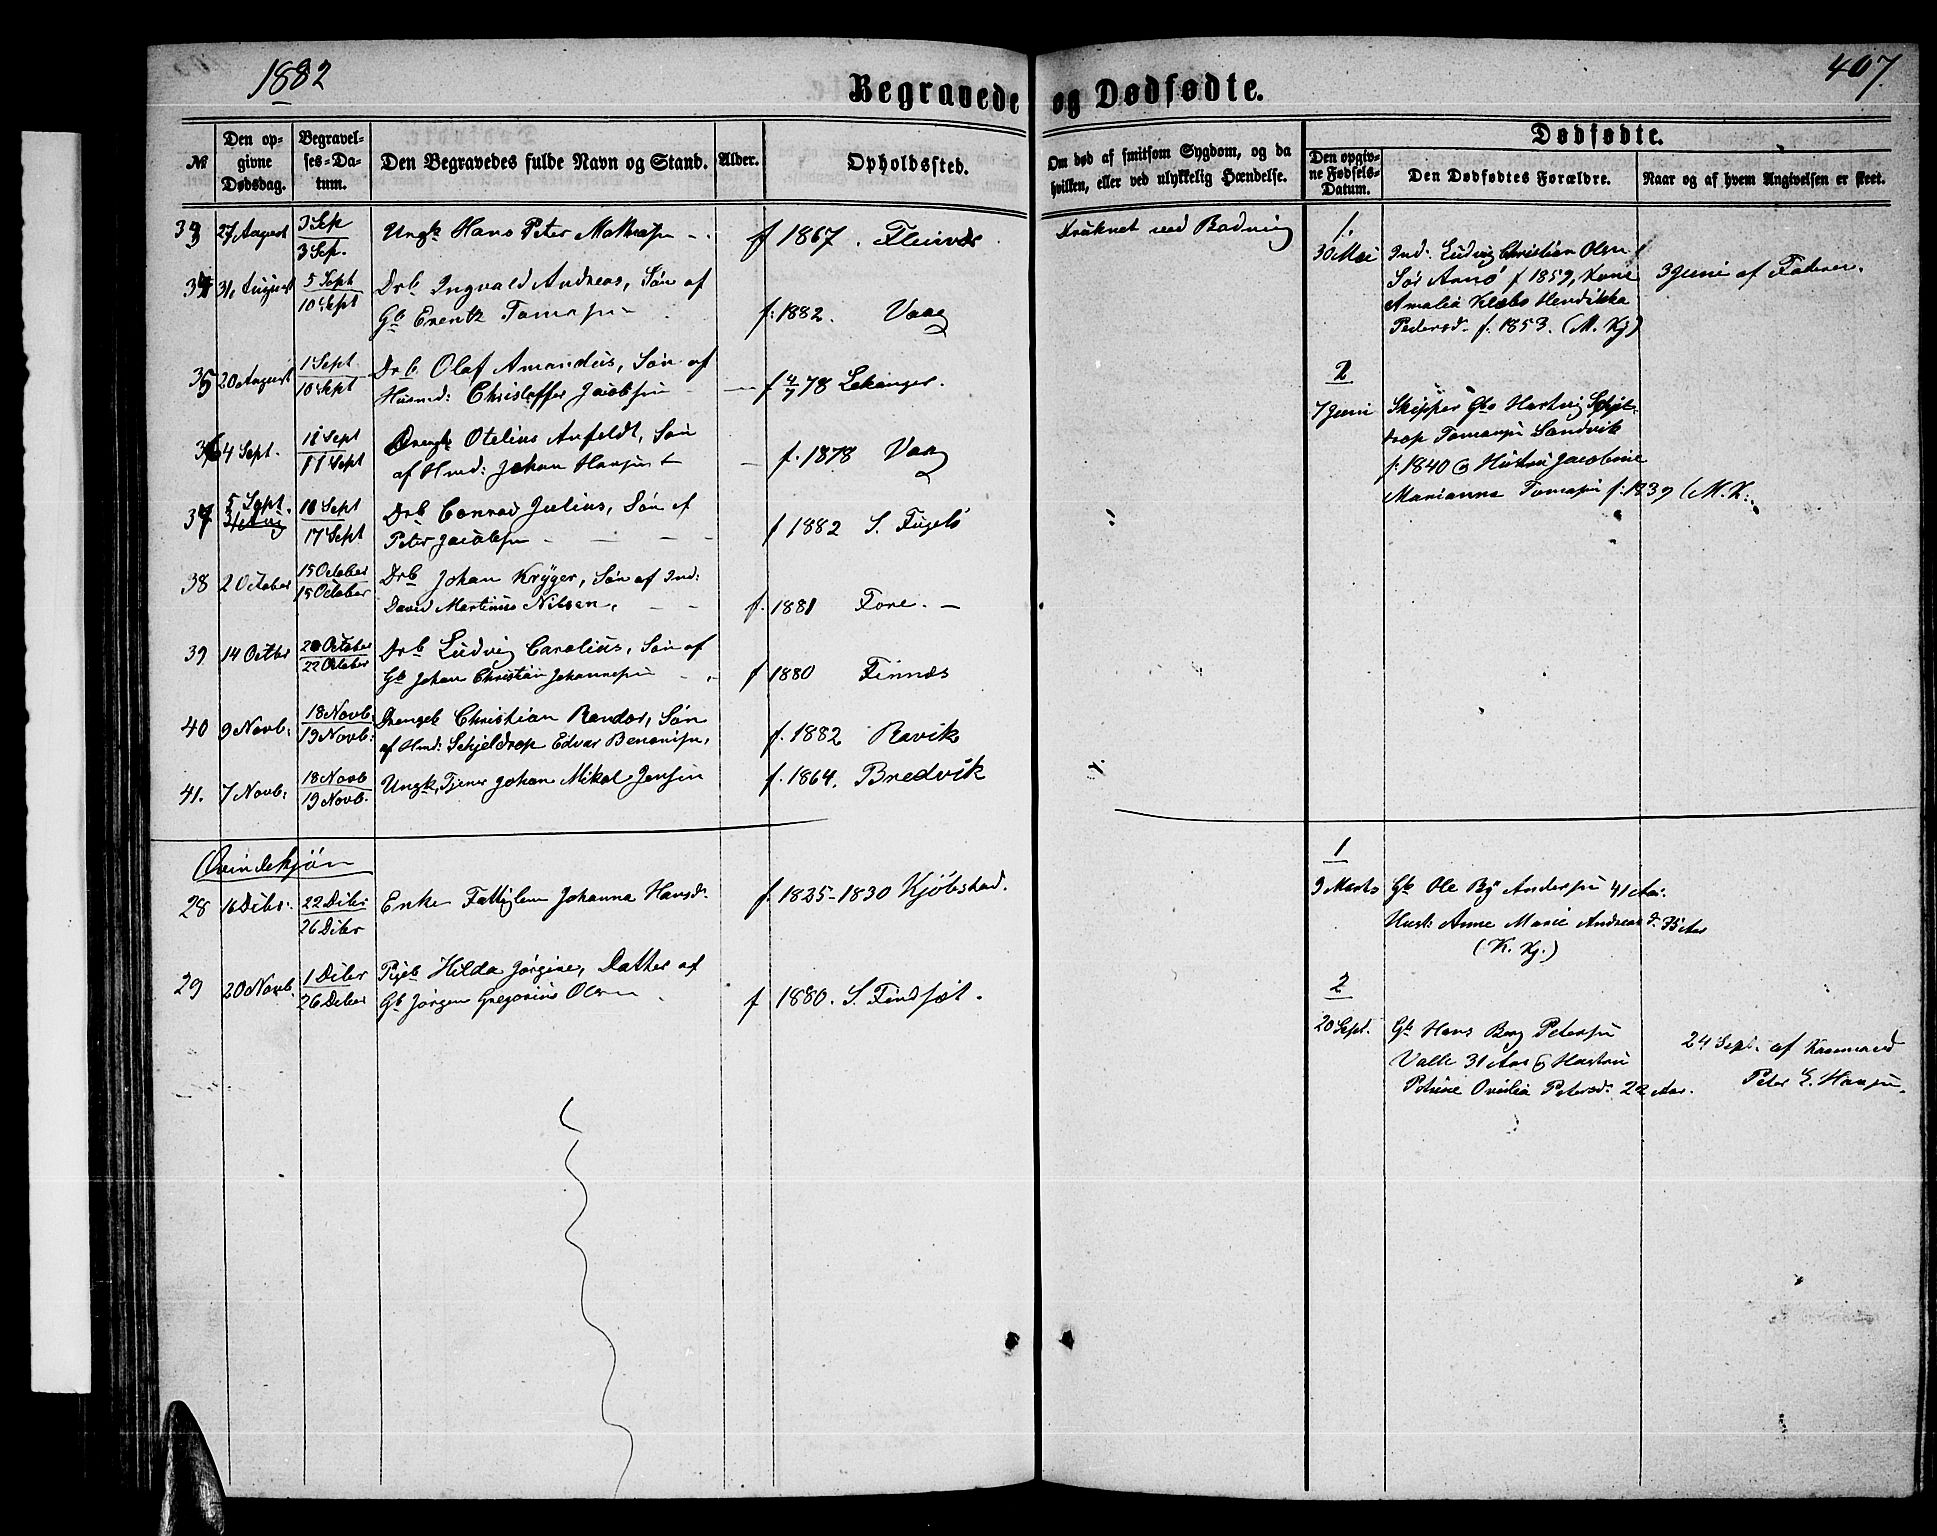 1882
Begravede og Dødfødte.
407.
Dødfødte.
№
Den opgivne Dødsdag.
Begravelses-Datum.
Den Begravedes fulde Navn og Stand.
Alder.
Opholdssted.
Om død af smitsom Sygdom, og da hvilken, eller ved ulykkelig Hændelse.
Den opgivne Fødsels-Datum.
Den Dødfødtes Forældre.
Naar og af hvem Angivelsen er skeet.
33 27 August 3 Sep Ungk Hans Peter f 1867. Fleinvær Druknet ved Badning
3 Sep.
34 31 August 5 Sept Drb Ingvald Andreas, Søn af
10 Sept Gb Erentz f: 1882. Vaag
35 20 August 1 Sept Drb Olaf Amandus, Søn af
10 Sept Husmd: Christoffer Jacobsen f 4/7 78 Lekanger.
36 4 Sept. 11 Sept Drengb Otelius Anfeldt, Søn
11 Sept af Hmd: Johan f. 1878 Vaag
37 5 Sept. 10 Sept Drb Conrad Julius, Søn af
17 Sept Peter Jacobsen f 1882 S. Fugelø
38 2 October 15 October Drb Johan Krÿger, Søn af Ind:
15 October David Martinus Nilsen, f. 1881 Fore.
39 14 Octbr 20 October Drb Ludvig Carolius, Søn af
22 October Gb Johan Christian Johannesen f 1880 Finnæs
40 9 Novb: 18 Novb. Drengeb Christian Randor, Søn
19 Novb: af Hmd: Schjeldrop Edvar Benonisen, f. 1882 Ravik
41. 7 Novb: 18 Novb Ungk, Tjener Johan Mikal Jensen f. 1864. Bredvik
19 Novb.
Qvindekjøn
28 16 Dcbr. 22 Dcbr Enke Fattiglem Johanna Hansd. f. 1825-1830 Kjøbstad.
26 Dcbr
29 20 Novb. 1 Dcbr Pigeb Hilda Jørgine, Datter af
26 Dcbr Gb Jørgen Gregorius Olsen f 1880. S.
1.
30 Mai Ind: Ludvig Christian Olsen
Sør Arnø f 1859, Kone 3 Juni af Faderen.
Amalia Klæbo Hendikka
Pedersd. f. 1853. (M. Kj)
2
7 Juni Skipper Gb Hartvig Schjel-
drop Tomassen Sandvik
f. 1840 & Hustru Jacobine
Marianna Tomasen f: 1839 (M. K.
1
9 Marts Gb Ole By Andersen 41 Aar.
Hust: Anne Marie Andreas d. 35 Aar
(K. Kj.)
2
20 Sept. Gb Hans Berg Petersen
Valle 31 Aar & Hustru 24 Sept. af
Petrine Ovidia Petersd: 22 Aar. Peter E. Hansen.